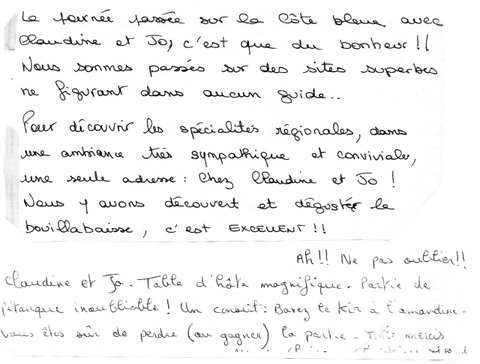 La journée passée sur la côte bleue avec
Claudine et Jo, c'est que du bonheur !!
Nous sommes passés sur des sites superbes
ne figurant dans aucun guide..
Pour découvrir les spécialités régionales, dans
une ambiance très sympathique et conviviale,
une seule adresse : Chez Claudine et Jo !
Nous y avons découvert et déguster la
bouillabaisse, c'est EXCELLENT !!
Ah !! Ne pas oublier !!
Claudine et Jo. Table d'hôte magnifique. Partie de
pétanque inoubliable ! Un conseil : Buvez le Kir à l'amandine.
vous êtes sûr de perdre (ou gagner) la partie - Mille mercis